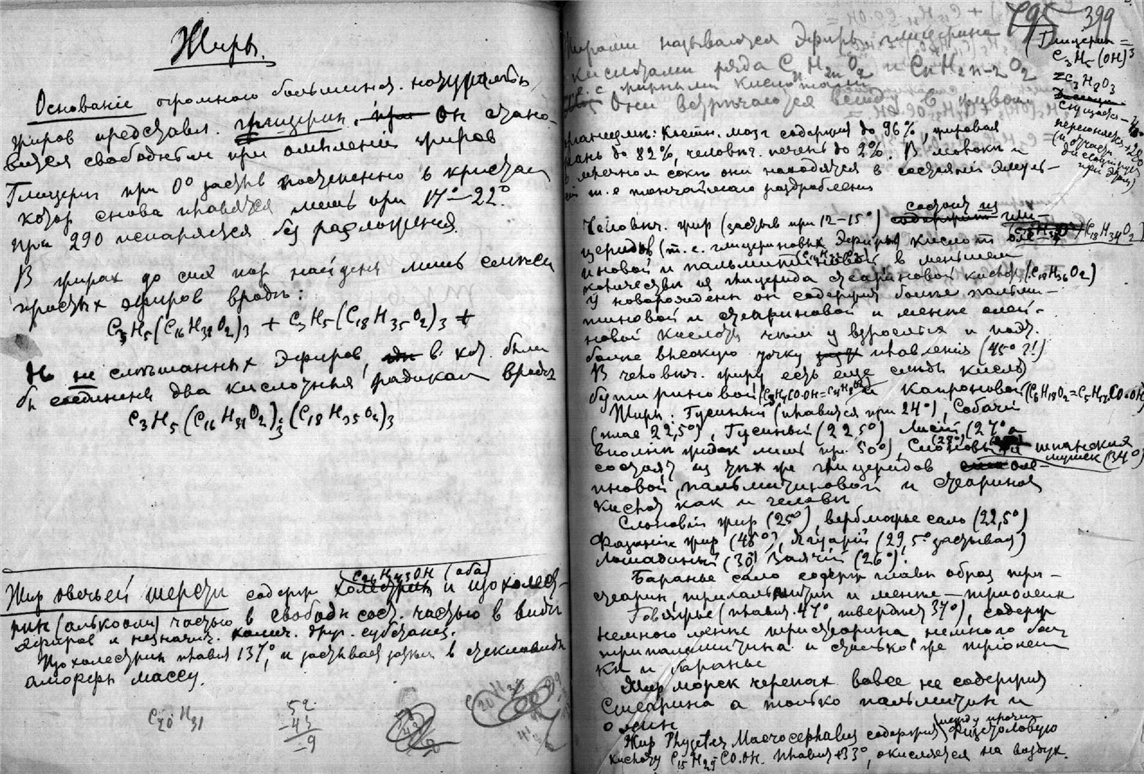 Жиры.
Основание огромного большинств. натуральн
жиров представл. глицерин, он стано-
вится свободным при омылении жиров
Глицерин при 0° застыв постепенно в кристал
котор снова плавятся лишь при 17°–22°
При 290 испаряется без разложения.
В жирах до сих пор найдена лишь смесь
простых эфиров вроде:
C3H5(C16H38O2)3 + C3H5(C18H35O2)3 +
не смешанных эфиров, в кот. были
б соединены два кислотных радикал вроде
C3H5(C16H31O2)3(C18H35O2)3
Жир овечьей шерсти содерж холестрин C26H43OH (оба) и изохолест-
рин (алкоголи) частью в свободн сост. частью в виде
эфиров и незначит. колич. друг. субстанц.
Изохолестрин плавил 137°, и застывает в стекловидн
аморфн массу.
C20H31
52
43
–9
795 399
Жирами называются эфиры глицерина
с кислотами ряда CnH2nO2 и CnH2n-2O2
с жирными кислотами
Они встречаются всюду в живот
(Глицерин =
C3H5(OH)3
=C3H8O3
организм: Костн. мозг содержит до 96%, жировая
ткань до 82%, человеч. печень до 2%. В молоке и
млечном соке они находятся в состояний эмуль-
сий т.е тончайшаго раздробления
Человеч. жир (застыв при 12–15°) состоит из гли-
церидов (т. е. глицериновых эфиров) кислот оле- (C18H34O2)
иновой и пальмитиновой в меньшем
количестве из глицерида стеариновой кислот (C18H36O2)
У новорожденн он содержит более пальми-
тиновой и стеариновой и менее олеи-
новой кислоты чем у взрослых и потом
более высокую точку плавления (45° ?!)
В человеч. жиру есть еще следы кислот
бутириновой (C3H7CO.OH=C4H8O2) и капроновой
Жиры. Гусиный (плавится при 24°), Собачий
(тоже 22,5°), Гусиный (22 5°) Лисий (27°а
вполне жидок лишь при 50°), Слоновый (28°) шпанских
мушек (34°)
состоят из тех же глицеридов, оле-
иновой, пальмитиновой и стеаринов
кислот как и человеч
Слоновий жир (25°), верблюжье сало (22,5°)
Фазаний жир (48°), Ягуарий (29,5° застывал)
Лошадиный (30) Заячий (26°).
Баранье сало содерж главн образ три-
стеарин, трипальмитин и менее – триолеин
Говяжье (плавит. 47°, твердеит 37°), содерж
немного менее тристеарина немного более
трипальмитина и столько же триолеи
как и баранье
Жир морск черепах вовсе не содержит
стеарина а только пальмитин и
олеин
Жир Physeter Macrocephalus содержит между прочим Физетоловую
кислоту C15H29CO.OH. плавит +33°, окисляется на воздух.